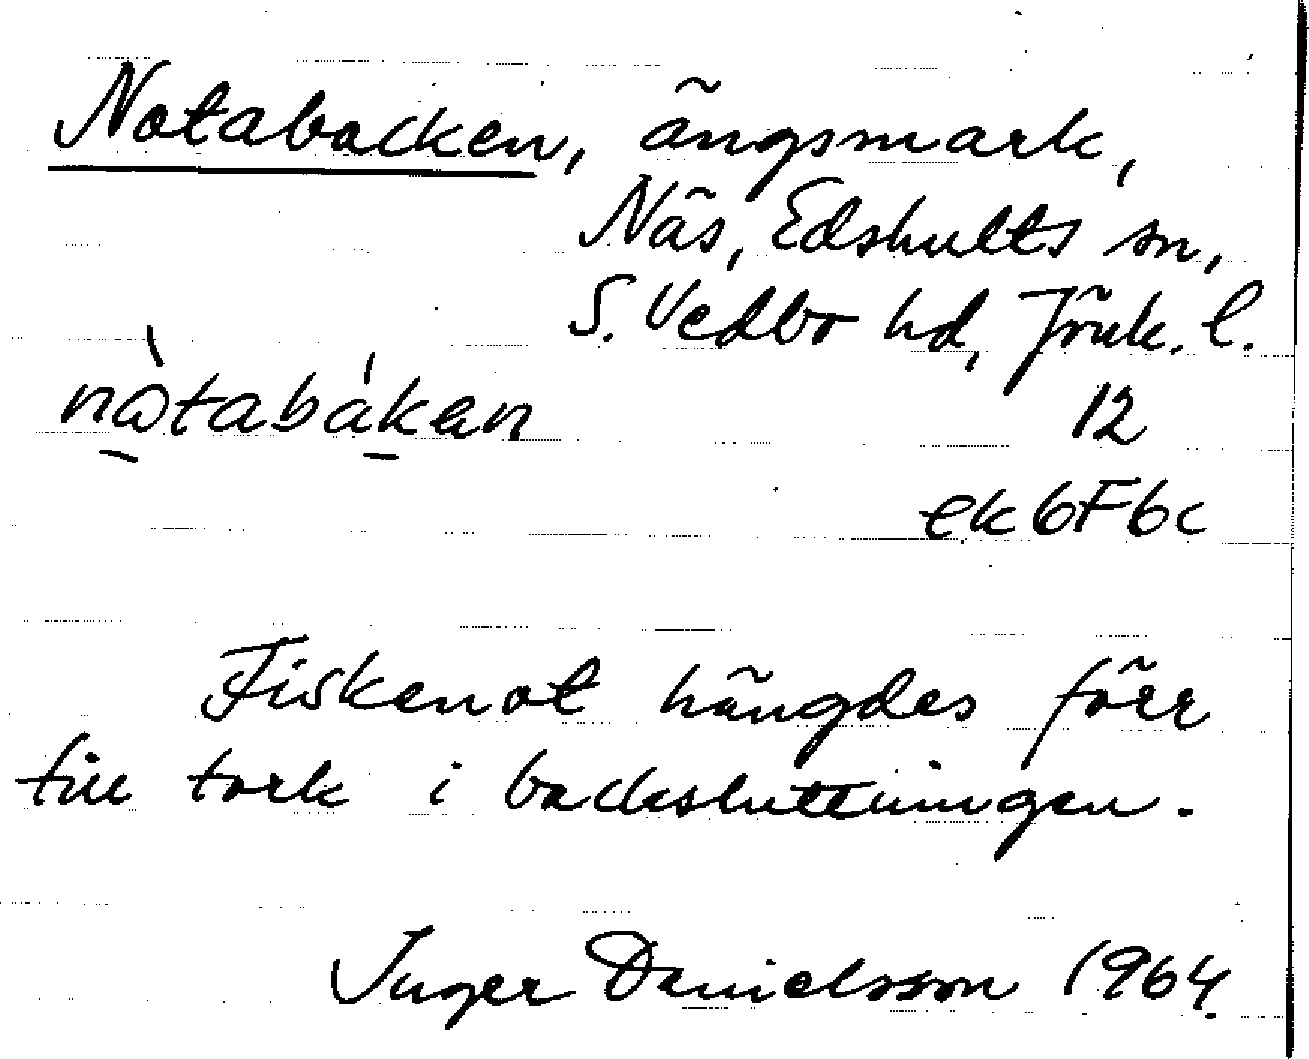 Notabacken, ängsmark,
Näs, Edshults sn,
S. Vedbo hd, Jönk. l.
nὰ̱tabá̱kεn
12
ek 6F6c
Fiskenot hängdes förr
till tork i backsluttningen.
Inger Danielsson 1964.